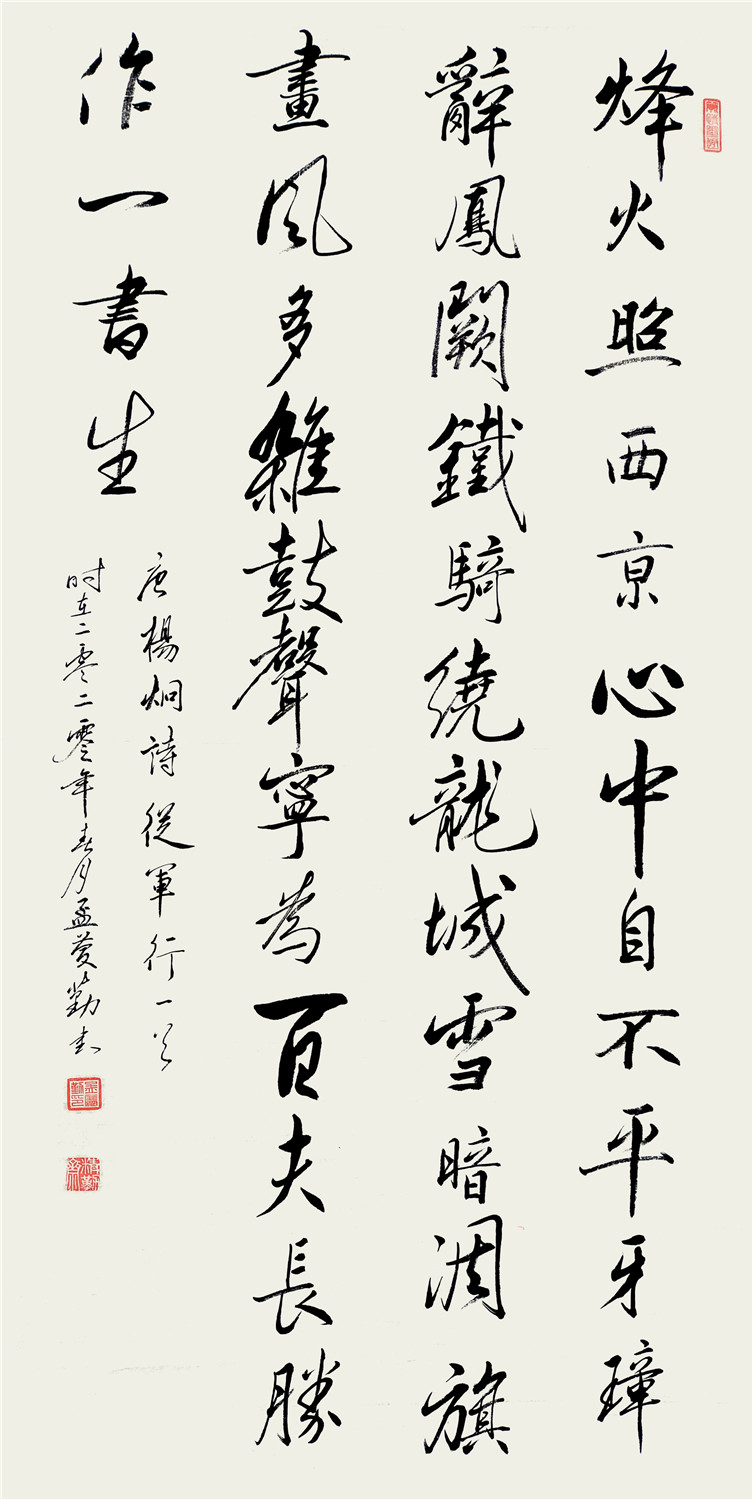 烽火照西京心中自不平牙璋
辭鳳闕鐵騎繞龍城雪暗凋旗
畫風多雜鼓聲寧為百夫長勝
作一書生
唐楊炯詩從軍行一首
时在二零二零年春月孟慶勤書